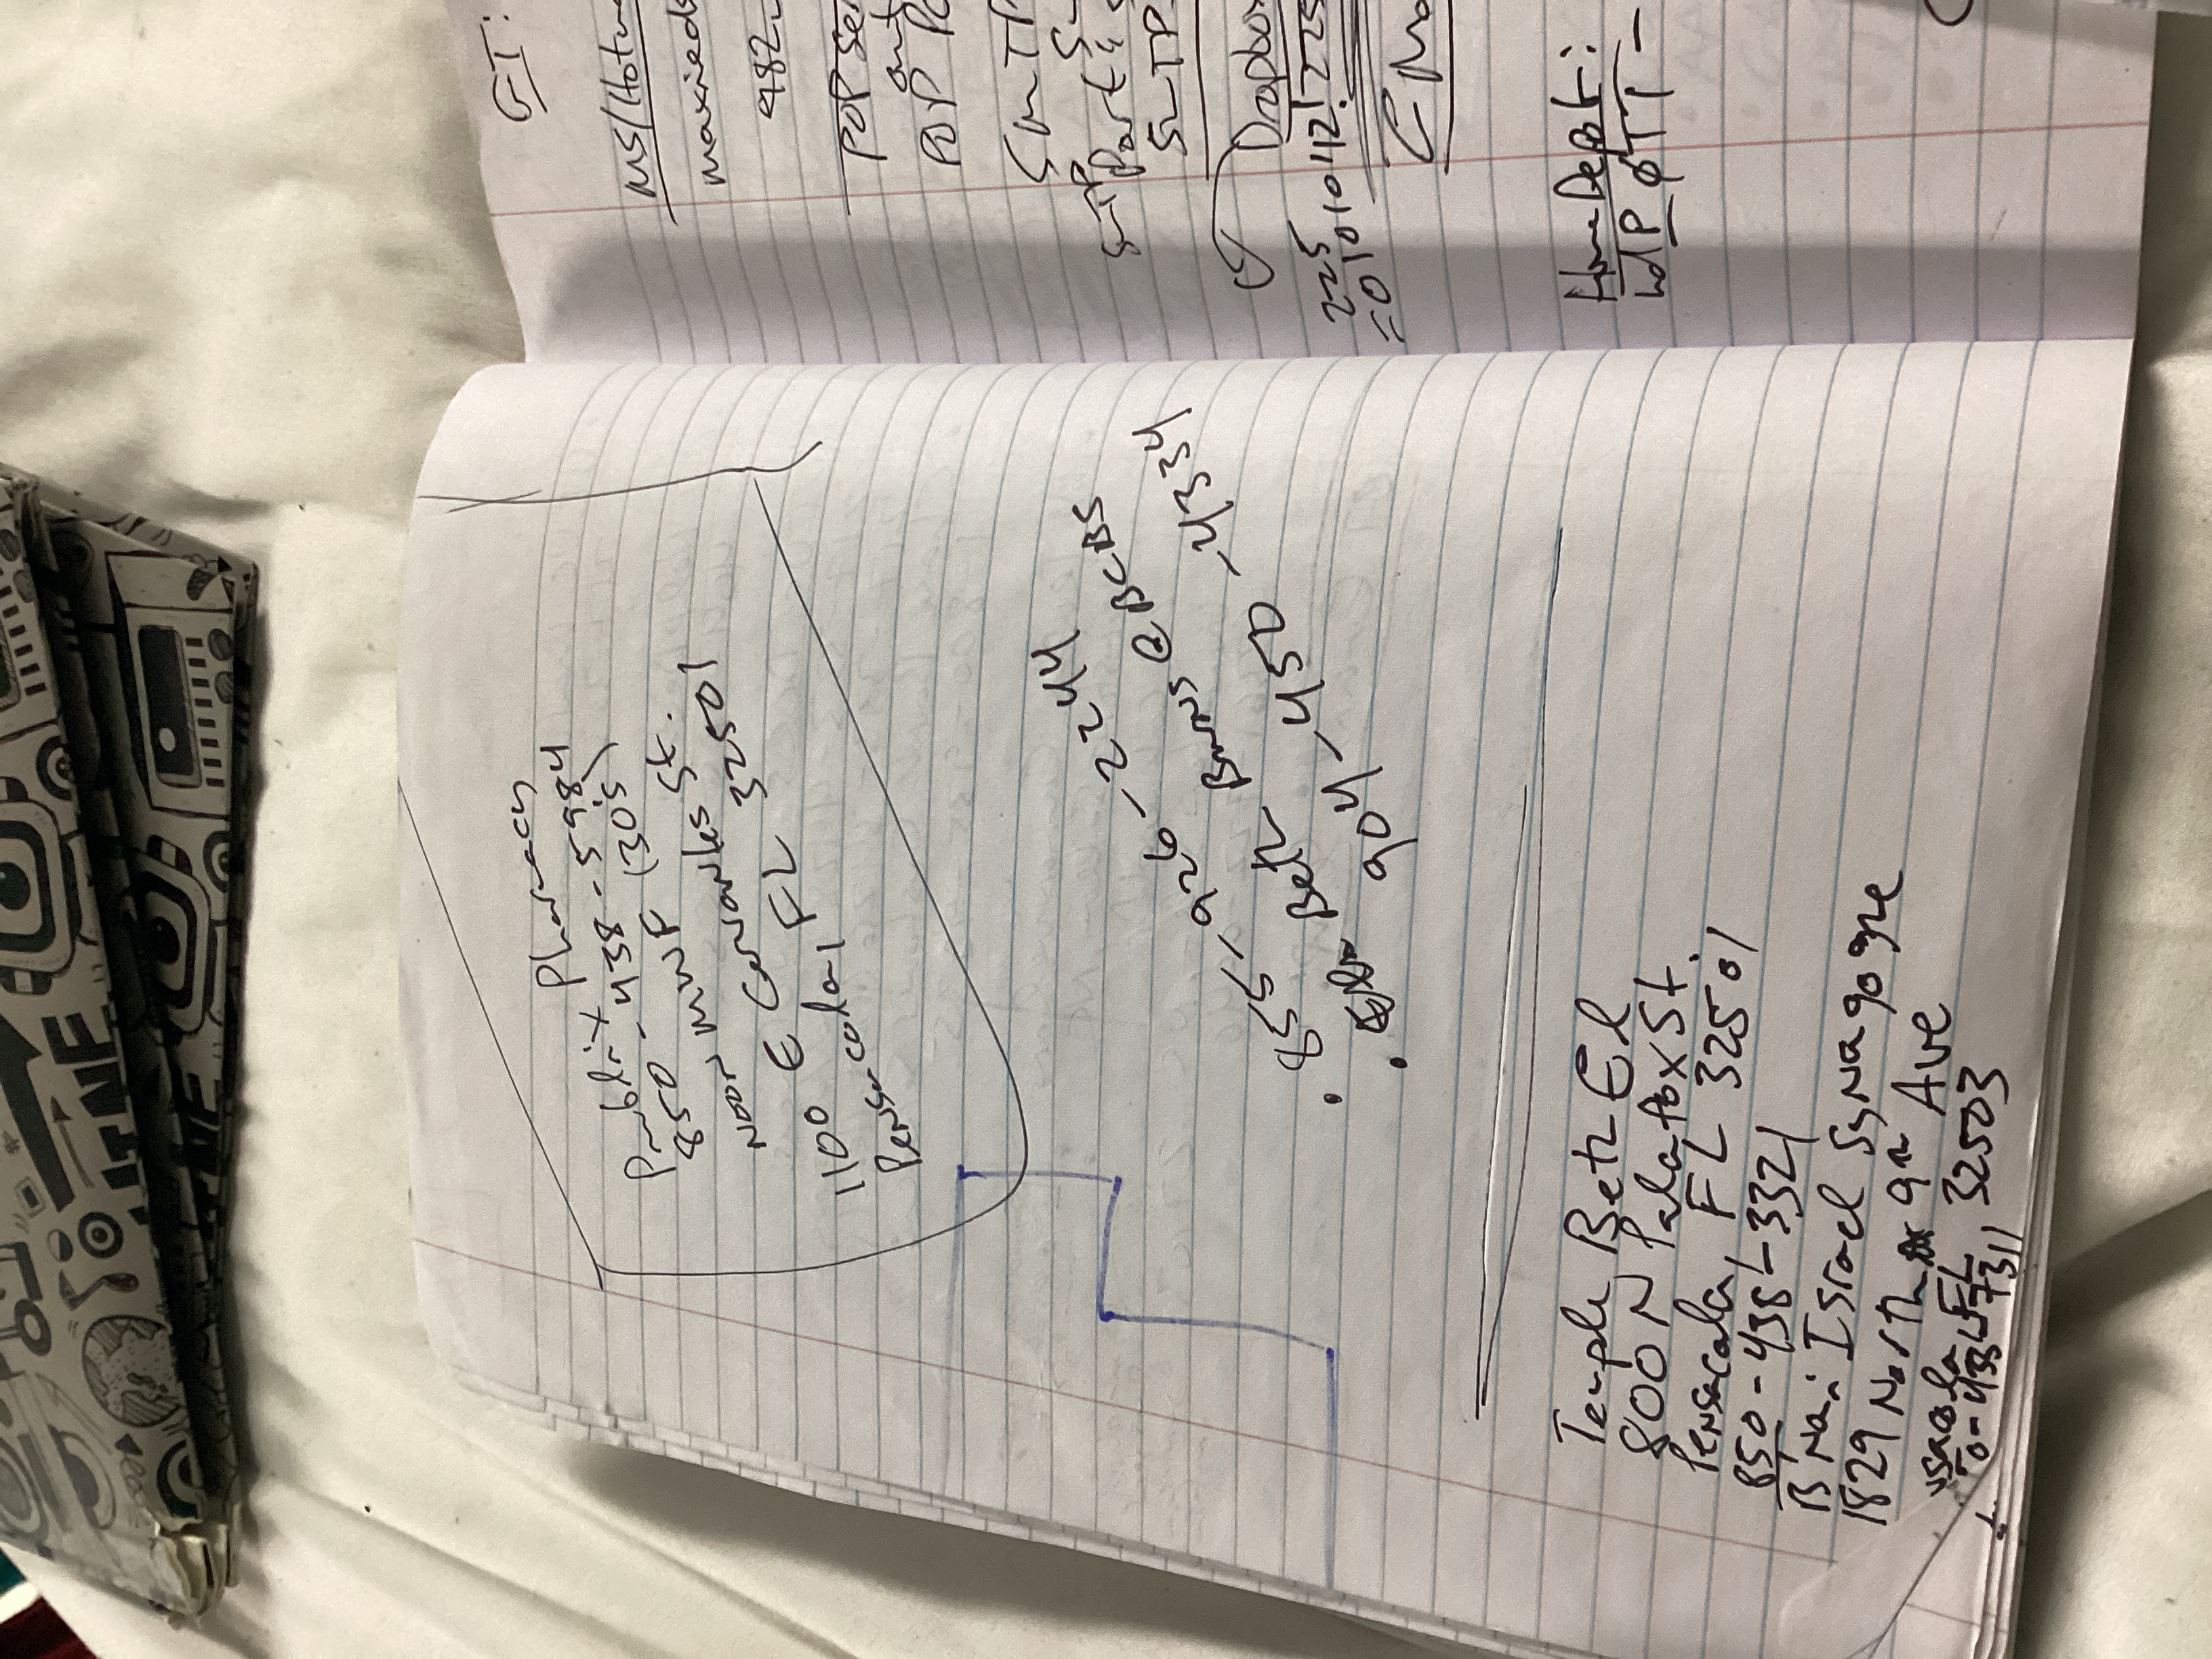 Publix Pharmacy
850-438-5984
NOON MWF (30's)
1100 E Cervantes St.
Pensacola, FL 32501
855-926-2244
Beth Burns @ BCBS
904-450-4334
Temple Beth El
800 N Palafox St.
Pensacola, FL 32501
850-438-3321
B'Nai Israel Synagogue
1829 North 9th Ave
nsacola, FL 32503
0-433-7311
GT:
MS/Hotm
maxieds
982-
POP Se
out
POP Po
SMTP
SMTP Port & S
SMTP
Dropbox
225
=01010112! 225
EMa
Home Depot:
hdPØTT-